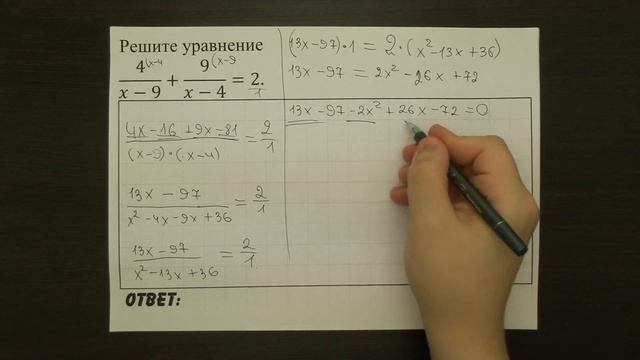 Решите уравнение
4(x-4 / x − 9 + 9(x-9 / x − 4 = 2. / 1
4x-16+9x-81 / (x-9)·(x-4) = 2/1
13x - 97 / x² -4x -9x +36 = 2/1
13x-97 / x² -13x +36 = 2/1
ОТВЕТ:
(13x-97)·1 = 2·(x²-13x+36)
13x - 97 = 2x² - 26x + 72
13x - 97 - 2x² + 26x - 72 = 0